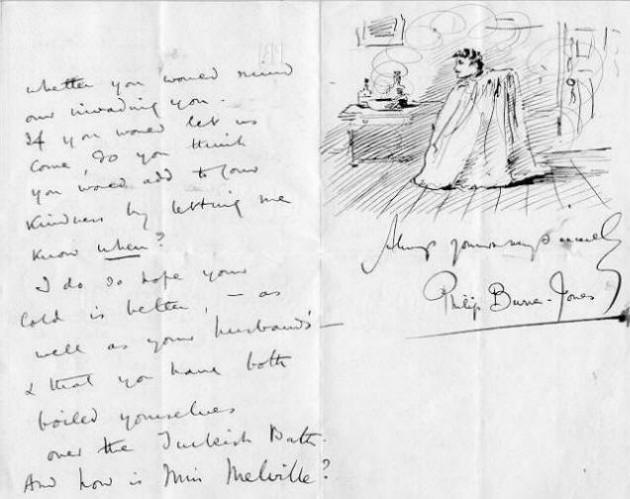 whether you would mind
our invading you.
If you would let us
come, do you think
you would add to your
kindness by letting me
know when?
I do so hope your
cold is better, — as
well as your husband's —
& that you have both
boiled yourselves
over the Turkish Bath.
And how is Miss Melville?
Always yours very sincerely
Philip Burne-Jones